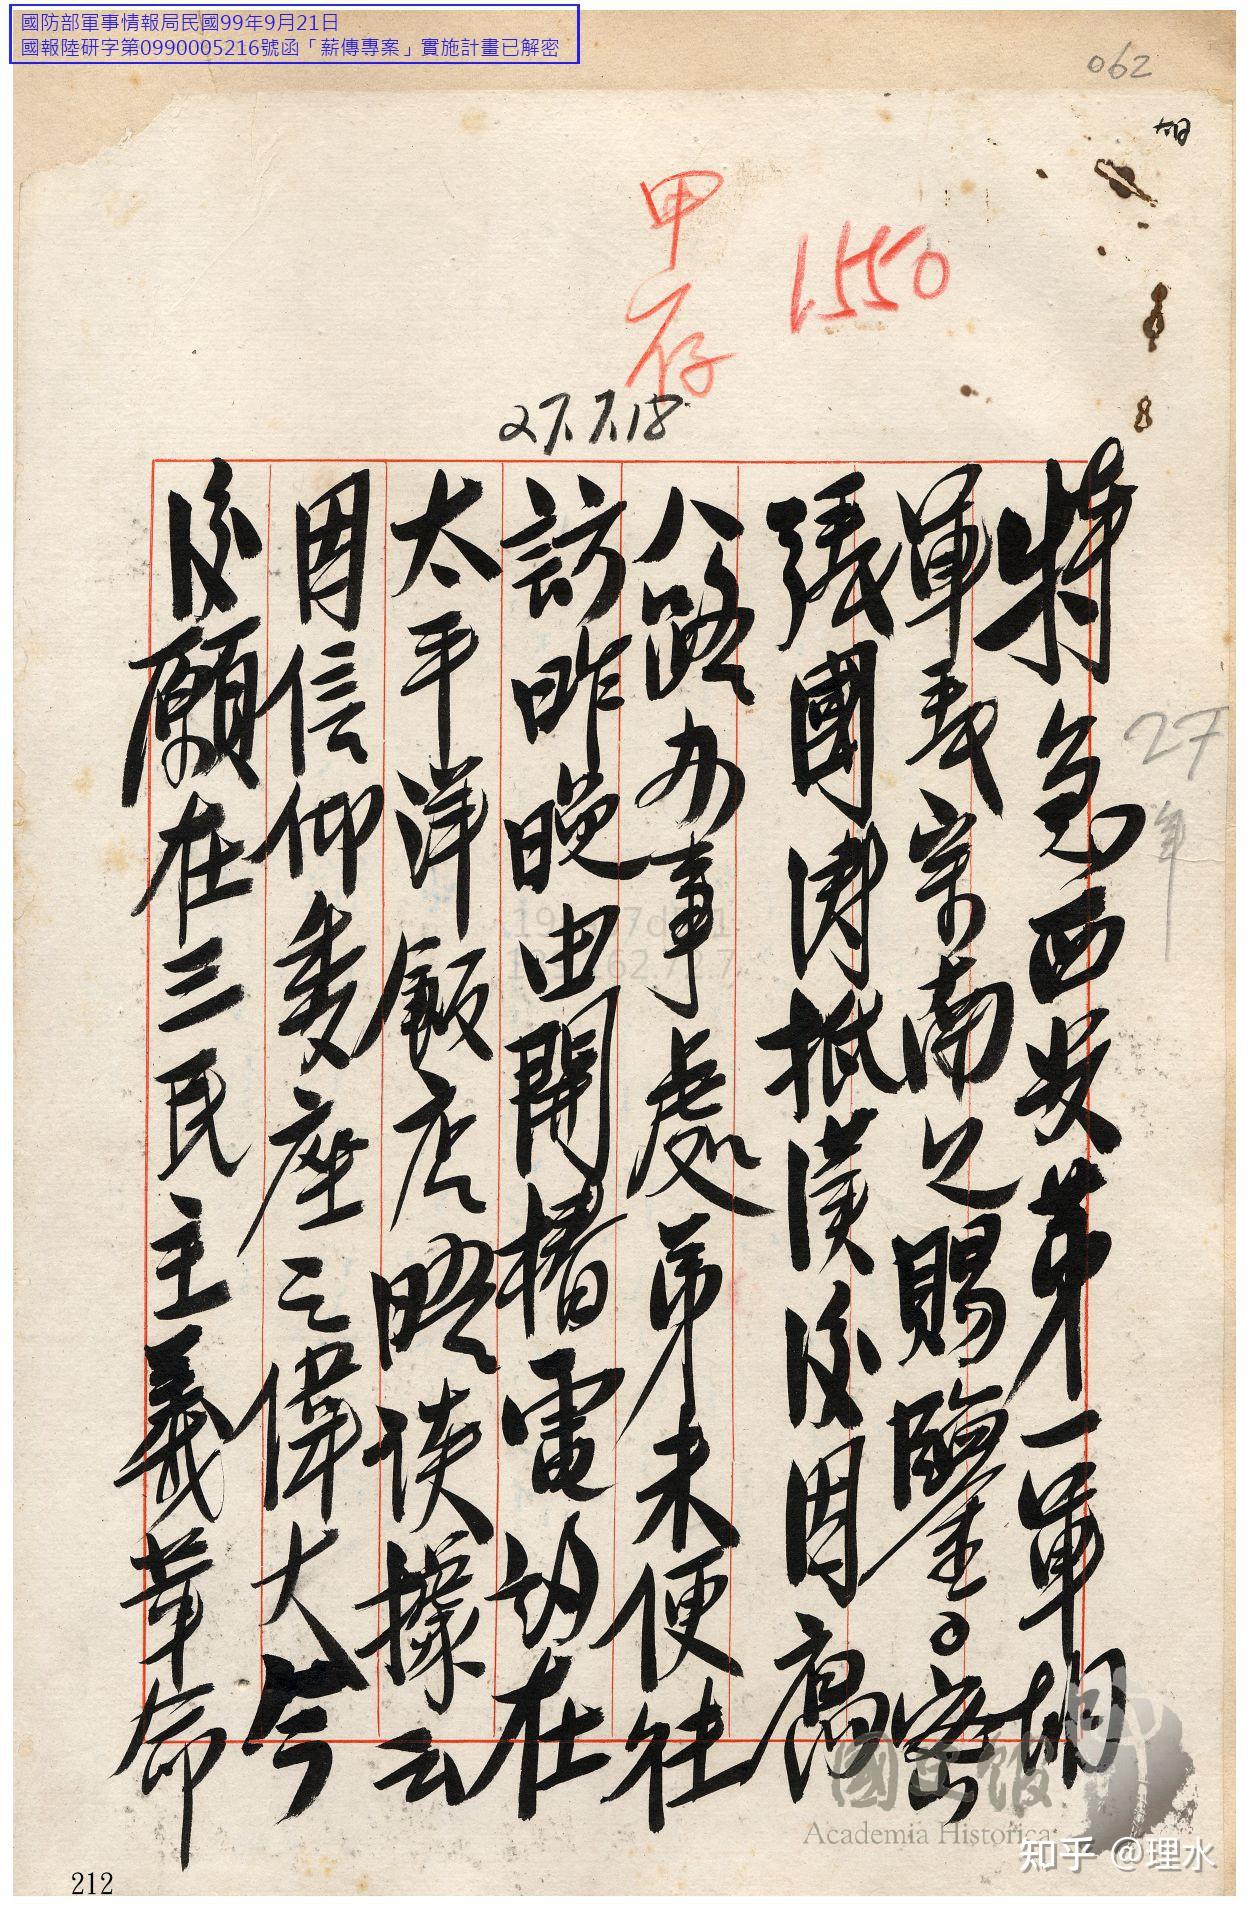 國防部軍事情報局民國99年9月21日
國報陸研字第0990005216號函「薪傳專案」實施計畫已解密
062
1550
甲存
27.7.18
27年
特急西安第一軍胡
軍長宗南兄賜鑒。密
張國燾抵漢後因寓
八路办事處弟未便往
訪昨晚由開椿電約在
太平洋飯店晤談據云
因信仰委座之偉大今
後願在三民主義革命
國史館
Academia Historica
知乎 @理水
212